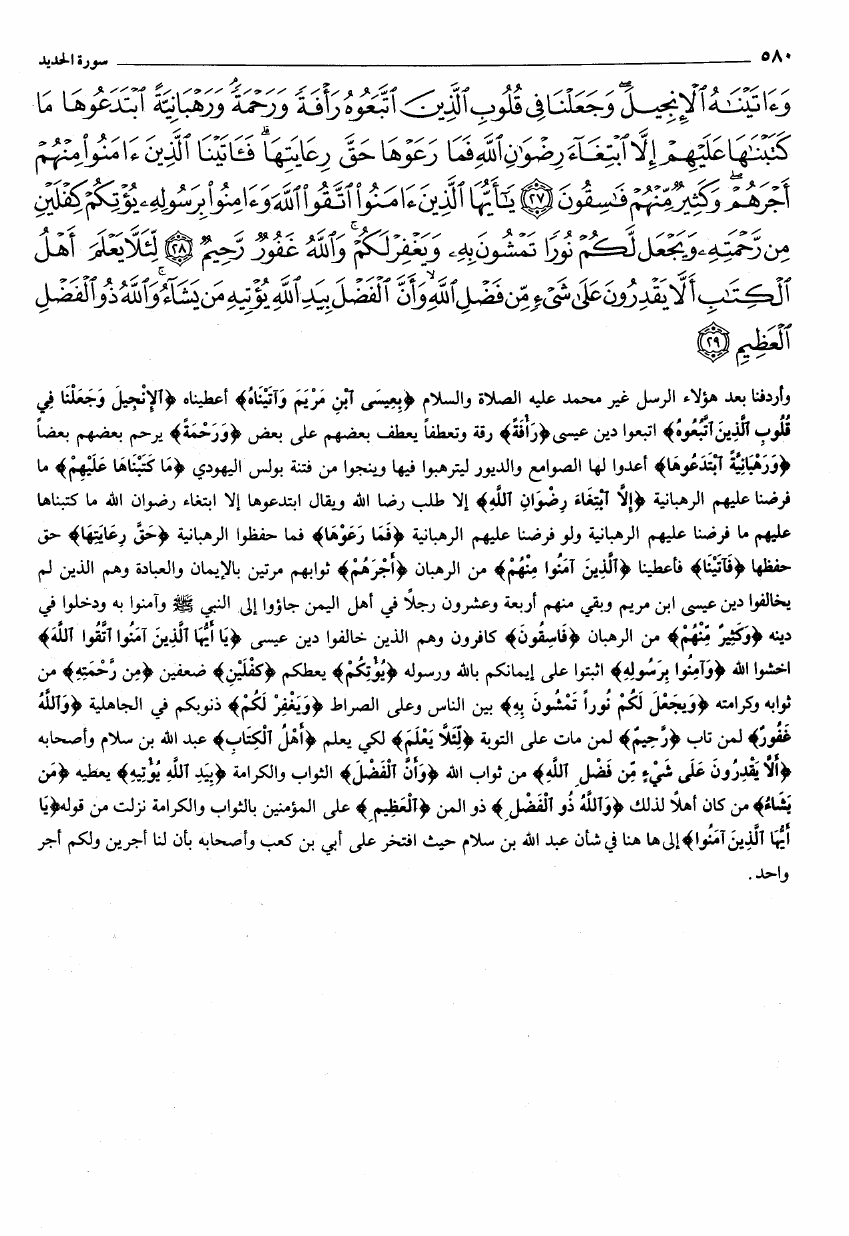 ٥٨٠ سورة الحديد
وَءَاتَيْنَٰهُ ٱلْإِنجِيلَ ۖ وَجَعَلْنَا فِى قُلُوبِ ٱلَّذِينَ ٱتَّبَعُوهُ رَأْفَةً وَرَحْمَةً ۚ وَرَهْبَانِيَّةً ٱبْتَدَعُوهَا مَا
كَتَبْنَٰهَا عَلَيْهِمْ إِلَّا ٱبْتِغَآءَ رِضْوَٰنِ ٱللَّهِ فَمَا رَعَوْهَا حَقَّ رِعَايَتِهَا ۖ فَـَٔاتَيْنَا ٱلَّذِينَ ءَامَنُوا۟ مِنْهُمْ
أَجْرَهُمْ ۖ وَكَثِيرٌ مِّنْهُمْ فَٰسِقُونَ ﴿٢٧﴾ يَٰٓأَيُّهَا ٱلَّذِينَ ءَامَنُوا۟ ٱتَّقُوا۟ ٱللَّهَ وَءَامِنُوا۟ بِرَسُولِهِۦ يُؤْتِكُمْ كِفْلَيْنِ
مِن رَّحْمَتِهِۦ وَيَجْعَل لَّكُمْ نُورًا تَمْشُونَ بِهِۦ وَيَغْفِرْ لَكُمْ ۚ وَٱللَّهُ غَفُورٌ رَّحِيمٌ ﴿٢٨﴾ لِّئَلَّا يَعْلَمَ أَهْلُ
ٱلْكِتَٰبِ أَلَّا يَقْدِرُونَ عَلَىٰ شَىْءٍ مِّن فَضْلِ ٱللَّهِ ۙ وَأَنَّ ٱلْفَضْلَ بِيَدِ ٱللَّهِ يُؤْتِيهِ مَن يَشَآءُ ۚ وَٱللَّهُ ذُو ٱلْفَضْلِ
ٱلْعَظِيمِ ﴿٢٩﴾
وأردفنا بعد هؤلاء الرسل غير محمد عليه الصلاة والسلام ﴿بِعِيسَى ٱبْنِ مَرْيَمَ وَآتَيْنَاهُ﴾ أعطيناه ﴿ٱلإِنْجِيلَ وَجَعَلْنَا فِي
قُلُوبِ ٱلَّذِينَ ٱتَّبَعُوهُ﴾ اتبعوا دين عيسى ﴿رَأْفَةً﴾ رقة وتعطفاً يعطف بعضهم على بعض ﴿وَرَحْمَةً﴾ يرحم بعضهم بعضاً
﴿وَرَهْبَانِيَّةً ٱبْتَدَعُوهَا﴾ أعدوا لها الصوامع والديور ليترهبوا فيها وينجوا من فتنة بولس اليهودي ﴿مَا كَتَبْنَاهَا عَلَيْهِمْ﴾ ما
فرضنا عليهم الرهبانية ﴿إِلاَّ ٱبْتِغَاءَ رِضْوَانِ ٱللَّهِ﴾ إلا طلب رضا الله ويقال ابتدعوها إلا ابتغاء رضوان الله ما كتبناها
عليهم ما فرضنا عليهم الرهبانية ولو فرضنا عليهم الرهبانية ﴿فَمَا رَعَوْهَا﴾ فما حفظوا الرهبانية ﴿حَقَّ رِعَايَتِهَا﴾ حق
حفظها ﴿فَآتَيْنَا﴾ فأعطينا ﴿ٱلَّذِينَ آمَنُوا مِنْهُمْ﴾ من الرهبان ﴿أَجْرَهُمْ﴾ ثوابهم مرتين بالإيمان والعبادة وهم الذين لم
يخالفوا دين عيسى ابن مريم وبقي منهم أربعة وعشرون رجلاً في أهل اليمن جاؤوا إلى النبي ﷺ وآمنوا به ودخلوا في
دينه ﴿وَكَثِيرٌ مِّنْهُمْ﴾ من الرهبان ﴿فَاسِقُونَ﴾ كافرون وهم الذين خالفوا دين عيسى ﴿يَا أَيُّهَا ٱلَّذِينَ آمَنُوا ٱتَّقُوا ٱللَّهَ﴾
اخشوا الله ﴿وَآمِنُوا بِرَسُولِهِ﴾ اثبتوا على إيمانكم بالله ورسوله ﴿يُؤْتِكُمْ﴾ يعطكم ﴿كِفْلَيْنِ﴾ ضعفين ﴿مِن رَّحْمَتِهِ﴾ من
ثوابه وكرامته ﴿وَيَجْعَلْ لَكُمْ نُوراً تَمْشُونَ بِهِ﴾ بين الناس وعلى الصراط ﴿وَيَغْفِرْ لَكُمْ﴾ ذنوبكم في الجاهلية ﴿وَٱللَّهُ
غَفُورٌ﴾ لمن تاب ﴿رَّحِيمٌ﴾ لمن مات على التوبة ﴿لِّئَلاَّ يَعْلَمَ﴾ لكي يعلم ﴿أَهْلُ ٱلْكِتَابِ﴾ عبد الله بن سلام وأصحابه
﴿أَلاَّ يَقْدِرُونَ عَلَى شَيْءٍ مِّن فَضْلِ ٱللَّهِ﴾ من ثواب الله ﴿وَأَنَّ ٱلْفَضْلَ﴾ الثواب والكرامة ﴿بِيَدِ ٱللَّهِ يُؤْتِيهِ﴾ يعطيه ﴿مَن
يَشَاءُ﴾ من كان أهلاً لذلك ﴿وَٱللَّهُ ذُو ٱلْفَضْلِ﴾ ذو المن ﴿ٱلْعَظِيمِ﴾ على المؤمنين بالثواب والكرامة نزلت من قوله ﴿يَا
أَيُّهَا ٱلَّذِينَ آمَنُوا﴾ إلى ها هنا في شأن عبد الله بن سلام حيث افتخر على أبي بن كعب وأصحابه بأن لنا أجرين ولكم أجر
واحد.